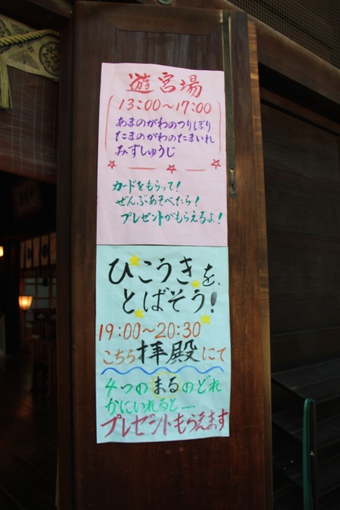 遊宮場
13:00〜17:00
あまのがわのつりぼり
たまのがわのたまいれ
みずしゅうじ
カードをもらって!
ぜんぶあそべたら!
プレゼントがもらえるよ!
ひこうきを、
とばそう!
19:00〜20:30
こちら拝殿にて
4つのまるのどれ
かにいれると―
プレゼントもらえます